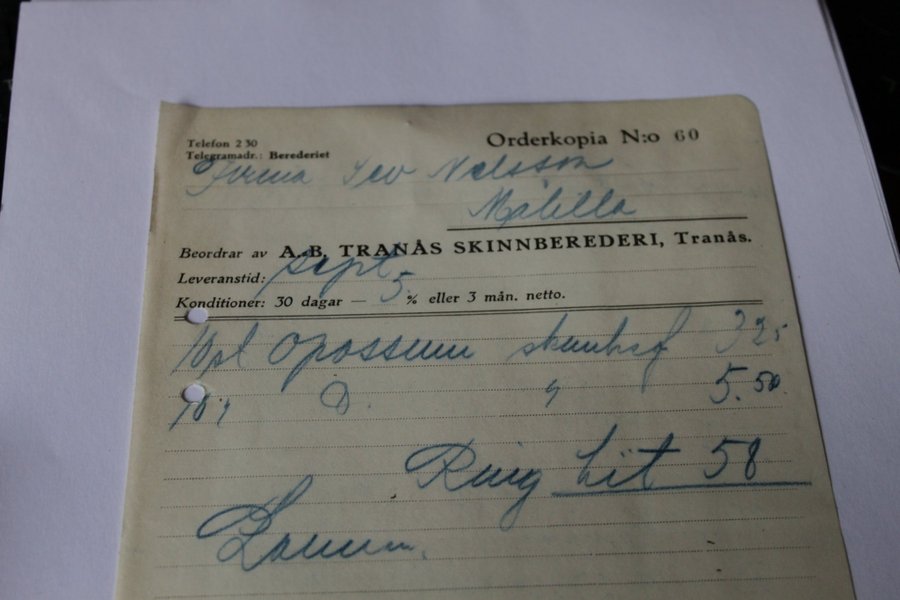 Telefon 2 30
Telegramadr.: Berederiet
Orderkopia N:o 60
Firma Nelsson
Målilla
Beordrar av A.-B. TRANÅS SKINNBEREDERI, Tranås.
Leveranstid: Sept.
Konditioner: 30 dagar — 5 % eller 3 mån. netto.
10 st Opossum skunksf 325
10 " D. " 5.50
Ring hit 58